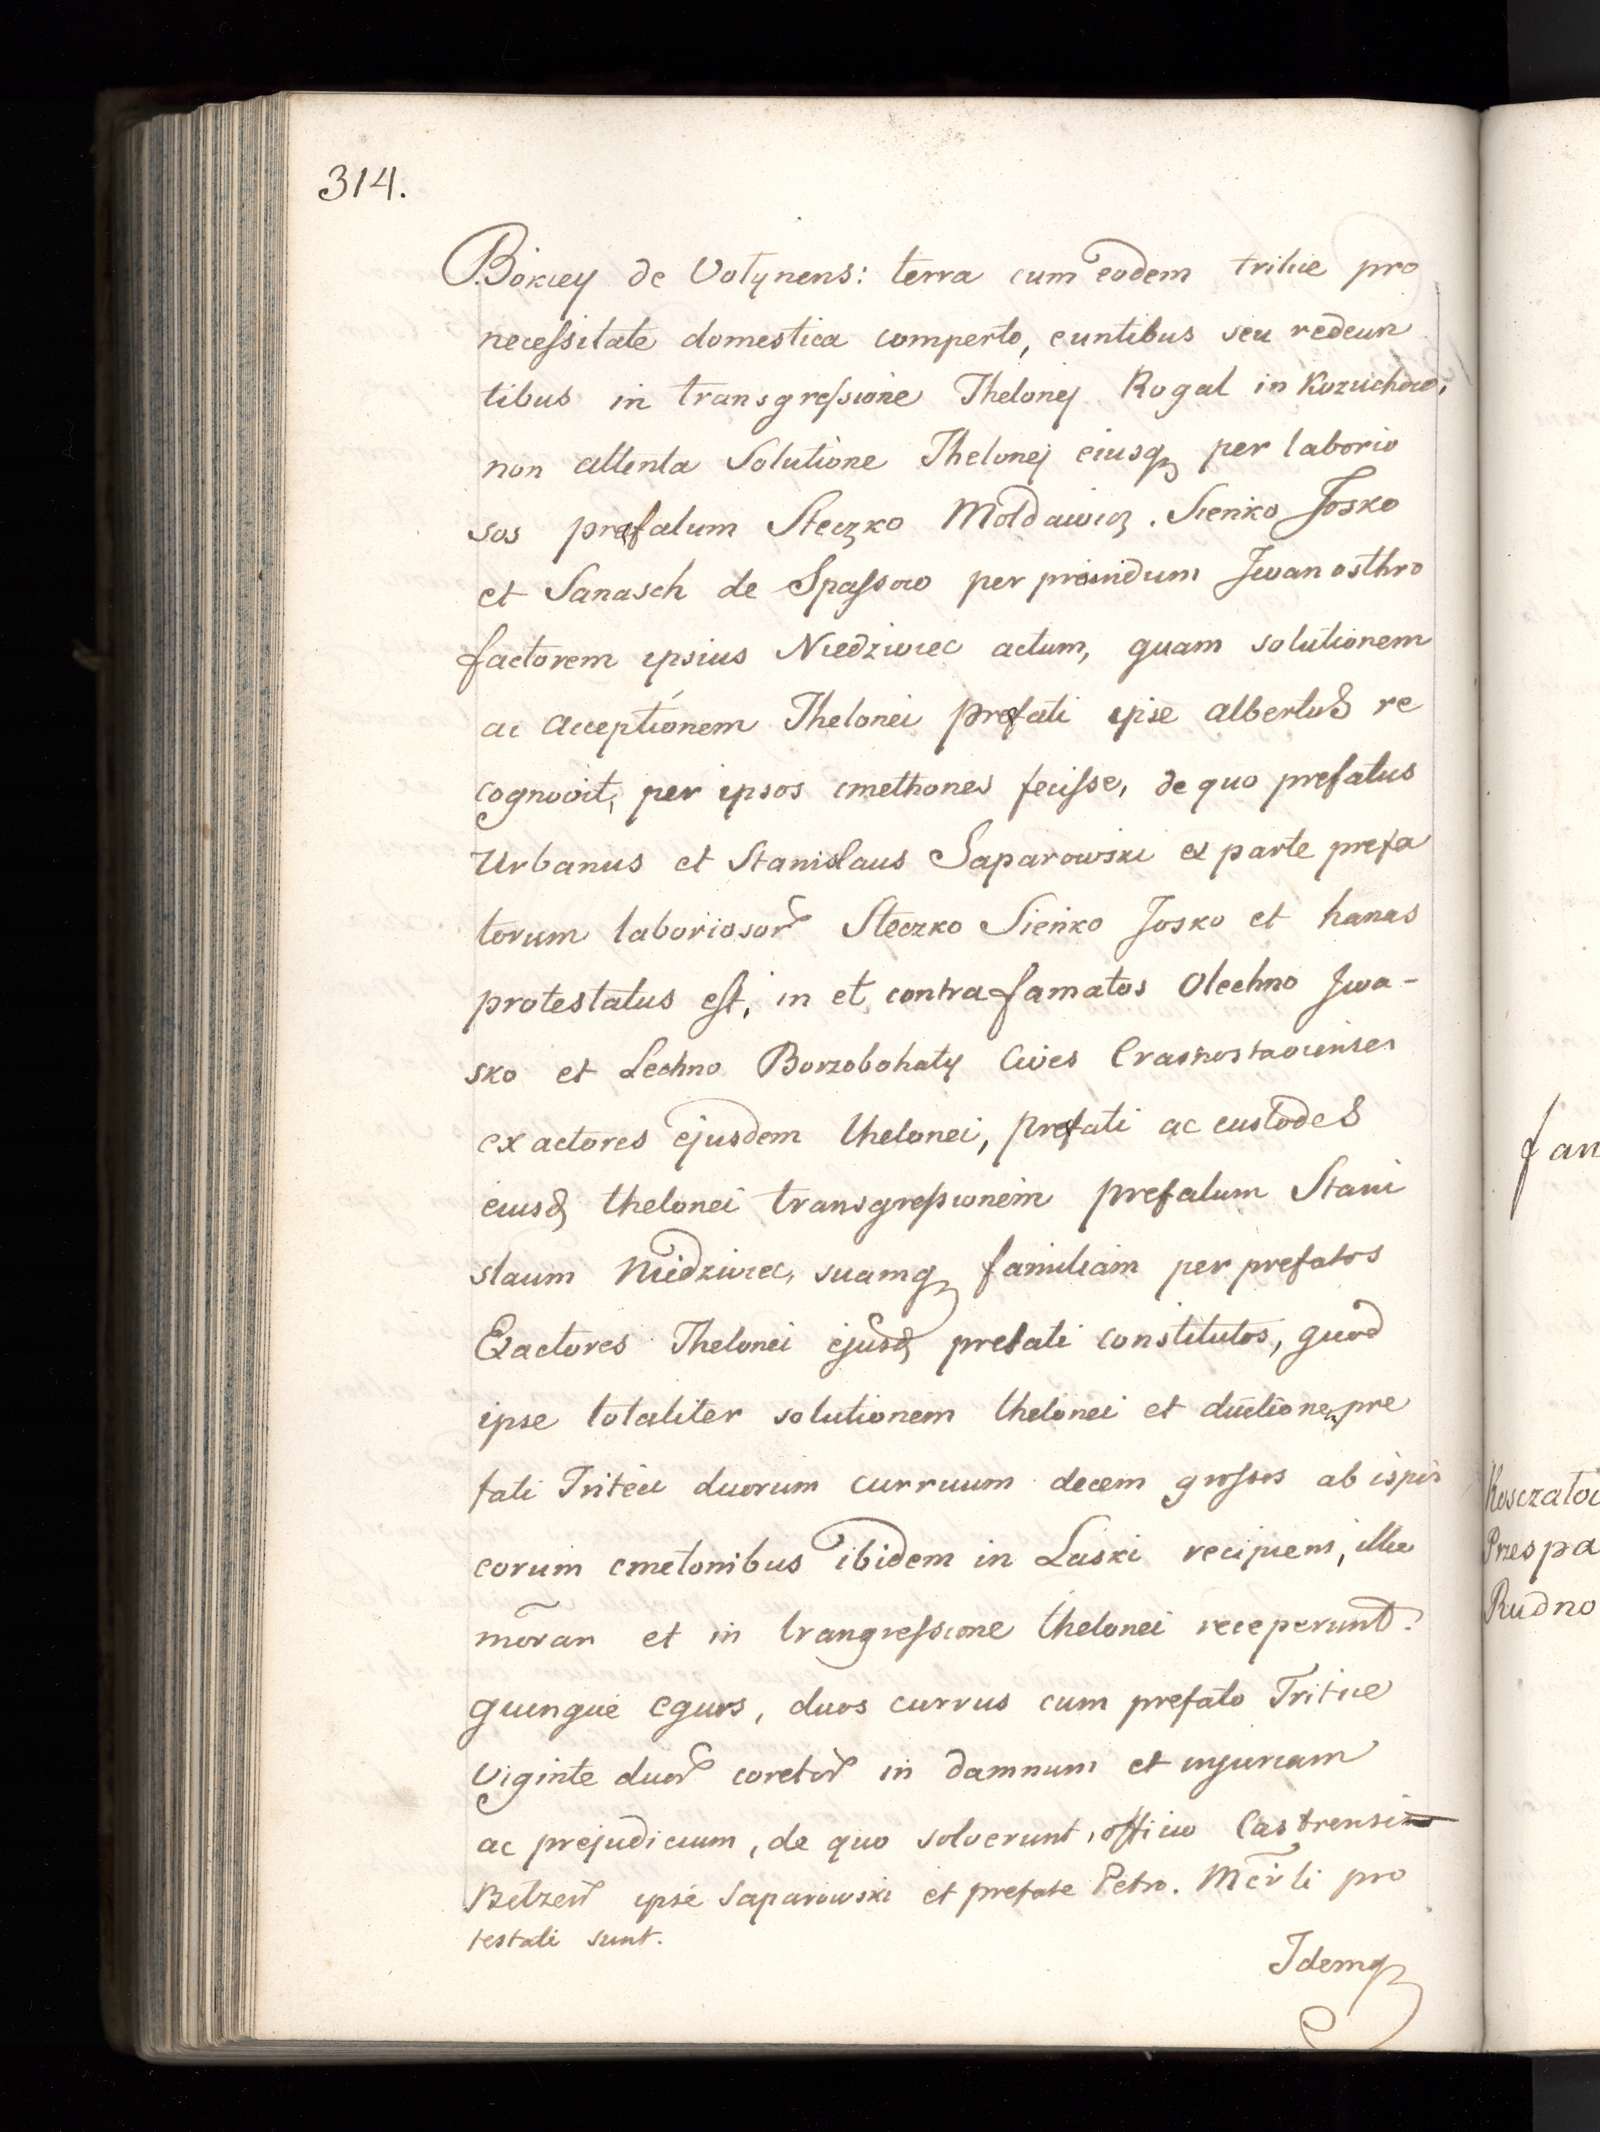 314.
Bokiey de Volynens: terra cum eodem tritice pro
necessitate domestica comperto, euntibus seu redeun
tibus in transgressione Thelonej Rogal in Kozuchow,
non attenta Solutione Thelonej eiusq per laborio
sos prefatum Steczko Moldawicz. Sienko Josko
et Sanasch de Spassow per providum Jwan osthro
factorem ipsius Niedzwiec actum, quam solutionem
ac acceptionem Thelonei prefati ipse albertus re
cognovit, per ipsos cmethones fecisse, de quo prefatus
Urbanus et Stanislaus Saparowski ex parte prefa
torum laboriosor Steczko Sienko Josko et hanas
protestatus est, in et contra famatos Olechno Jwa-
sko et Lechno Borzobohaty Cives Crasnostavienses
exactores ejusdem thelonei, prefati ac custodes
eiusd thelonei transgressionem prefatum Stani
slaum Niedzwiec, suamq familiam per prefatos
Exactores Thelonei ejusd prefati constitutos, quod
ipse totaliter solutionem thelonei et ductione pre
fati Tritici duorum curruum decem grossos ab ispis
eorum cmetonibus ibidem in Laski recipiens, illic
moran et in trangressione thelonei receperunt.
quinque equos, duos currus cum prefato Tritice
viginte duor coretor in damnum et injuriam
ac prejudicium, de quo solverunt, officio Castrensi
Belzen ipse Saparowski et prefate Petro. Mcirli pro
testati sunt.
Idemq
fan
Kosczatoi
Przespa
Rudno